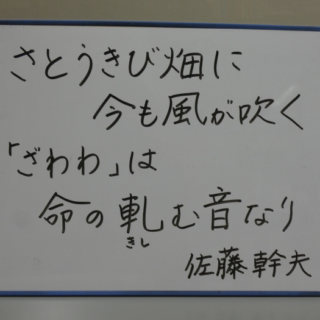 さとうきび畑に
今も風が吹く
「ざわわ」は
命の軋む音なり
きし
佐藤幹夫